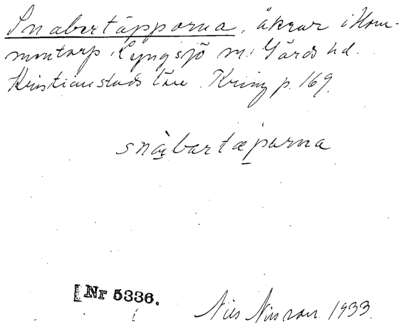 Snabertäpporna, åkrar i Hom-
mentorp i Lyngsjö sn: Gärds hd.
Kristianstads län. Kring p. 169.
snàbartæparna
[Nr 5336.
Nils Nilsson 1933.